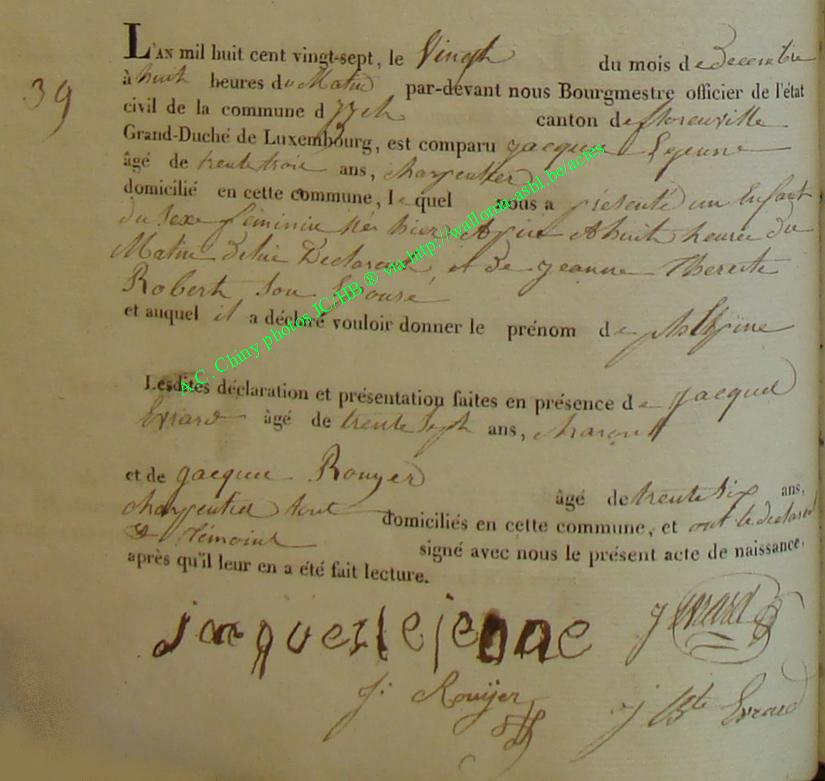 39
L'AN mil huit cent vingt-sept, le Vingt du mois de Decembre
à huit heures du Matin par-devant nous Bourgmestre officier de l'état
civil de la commune d canton de florenville
Grand-Duché de Luxembourg, est comparu jacques Lejeune
âgé de trente trois ans, charpentier
domicilié en cette commune, lequel nous a présenté un Enfant
du Sexe féminin né hier a huit heures du
Matin de lui Declarant, et de jeanne Therese
Robert son Epouse
et auquel il a déclaré vouloir donner le prénom de
Lesdites déclaration et présentation faites en présence de jacques
Evrard âgé de trente sept ans, charon
et de jacques Rouyer âgé de trente six ans,
charpentier tous domiciliés en cette commune, et ont le declarant
& témoins signé avec nous le présent acte de naissance,
après qu'il leur en a été fait lecture.
jacques lejeune
J Evrard
J: Rouyer
J Bte Evrard
A.C. Chiny photos IC/HB ® via http://wallonia.asbl.be/actes